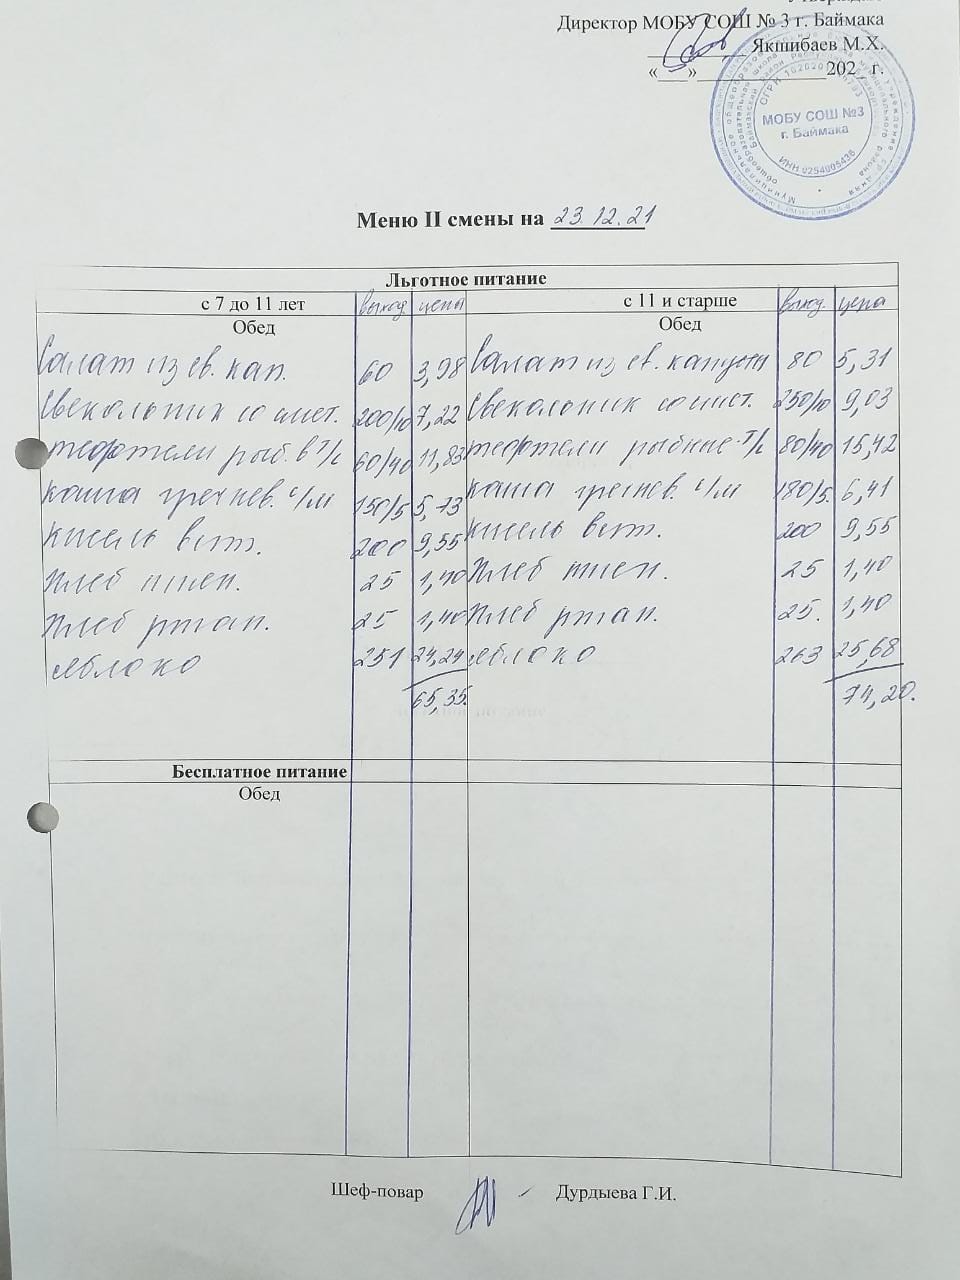 Директор МОБУ СОШ № 3 г. Баймака
Якшибаев М.Х.
«___»______________202_ г.
МОБУ СОШ №3
г. Баймака
ИНН 0254005436
Меню II смены на 23.12.21
Льготное питание
с 7 до 11 лет выход цена с 11 и старше выход. цена
Обед Обед
Салат из св. кап. 60 3,98 Салат из св. капусты 80 5,31
Свекольник со смет. 200/10 7,22 Свекольник со смет. 250/10 9,03
тефтели рыб. в т/с 60/40 11,83 тефтели рыбные т/с 80/40 15,42
каша гречнев. с/м 150/5 5,73 каша гречнев. с/м 180/5. 6,41
кисель вит. 200 9,55 кисель вит. 200 9,55
Хлеб пшен. 25 1,40 Хлеб пшен. 25 1,40
Хлеб ржан. 25 1,40 Хлеб ржан. 25. 1,40
яблоко 251 24,24 яблоко 263 25,68
65,35. 74,20.
Бесплатное питание
Обед
Шеф-повар Дурдыева Г.И.